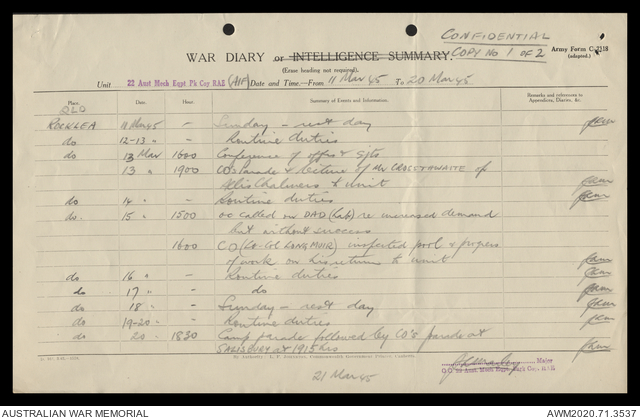 CONFIDENTIAL
COPY No 1 of 2
WAR DIARY or INTELLIGENCE SUMMARY.
Army Form C.2118
(adapted.)
(Erase heading not required).
Unit 22 Aust Mech Eqpt Pk Coy RAE (AIF) Date and Time.—From 11 Mar 45 To 20 Mar 45
Place. Date. Hour. Summary of Events and Information. Remarks and references to Appendices, Diaries, &c.
QLD
ROCKLEA 11 Mar 45 - Sunday - rest day
do 12-13 " - Routine duties
do 13 Mar 1600 Conference of offrs & sjts
13 " 1900 CO's Parade & lecture of Mr CROSSTHWAITE of
Allis Chalmers to unit
do 14 " - Routine duties
do. 15 " 1500 OC called on DAD (Lab) re increased demand
but without success
1600 CO (Lt-Col LONGMUIR) inspected pool & progress
of work on his return to unit
do 16 " - Routine duties
do 17 " - do
do 18 " - Sunday - rest day
do 19-20 - - Routine duties
do 20 " 1830 Camp parade followed by CO's parade at
SALISBURY at 1915 hrs
Major
21 Mar 45
AUSTRALIAN WAR MEMORIAL
AWM2020.71.3537